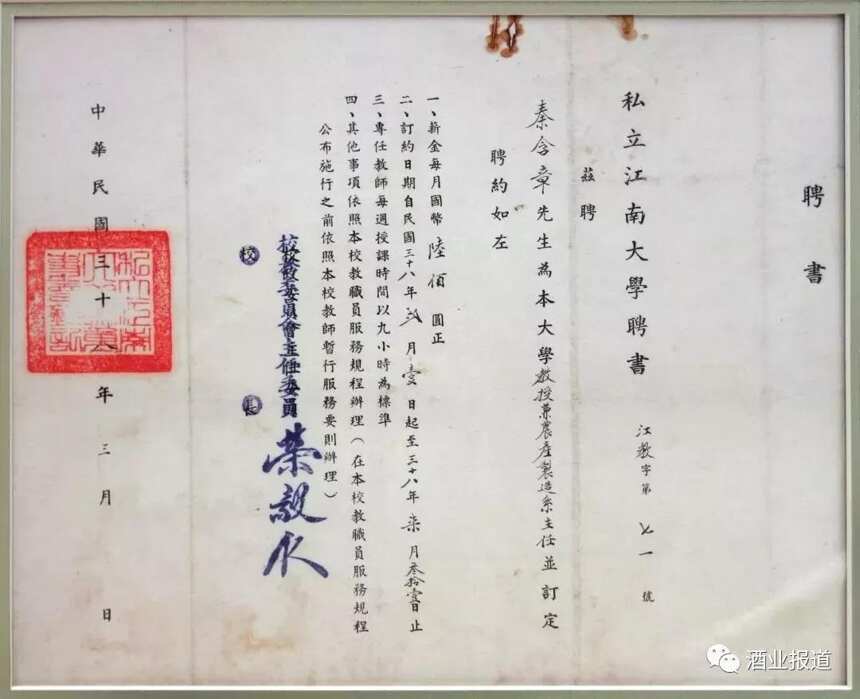 聘書
私立江南大學聘書
江教字第七一號
茲聘
秦含章先生為本大學教授兼農產製造系主任並訂定
聘約如左
一、薪金每月國幣陸佰圓正
二、訂約日期自民國三十八年貳月壹日起至三十八年柒月叁拾壹日止
三、專任教師每週授課時間以九小時為標準
四、其他事項依照本校教職員服務規程辦理（在本校教職員服務規程
公布施行之前依照本校教師暫行服務要則辦理）
校務委員會主任委員
校長
中華民國三十八年三月 日
酒业报道